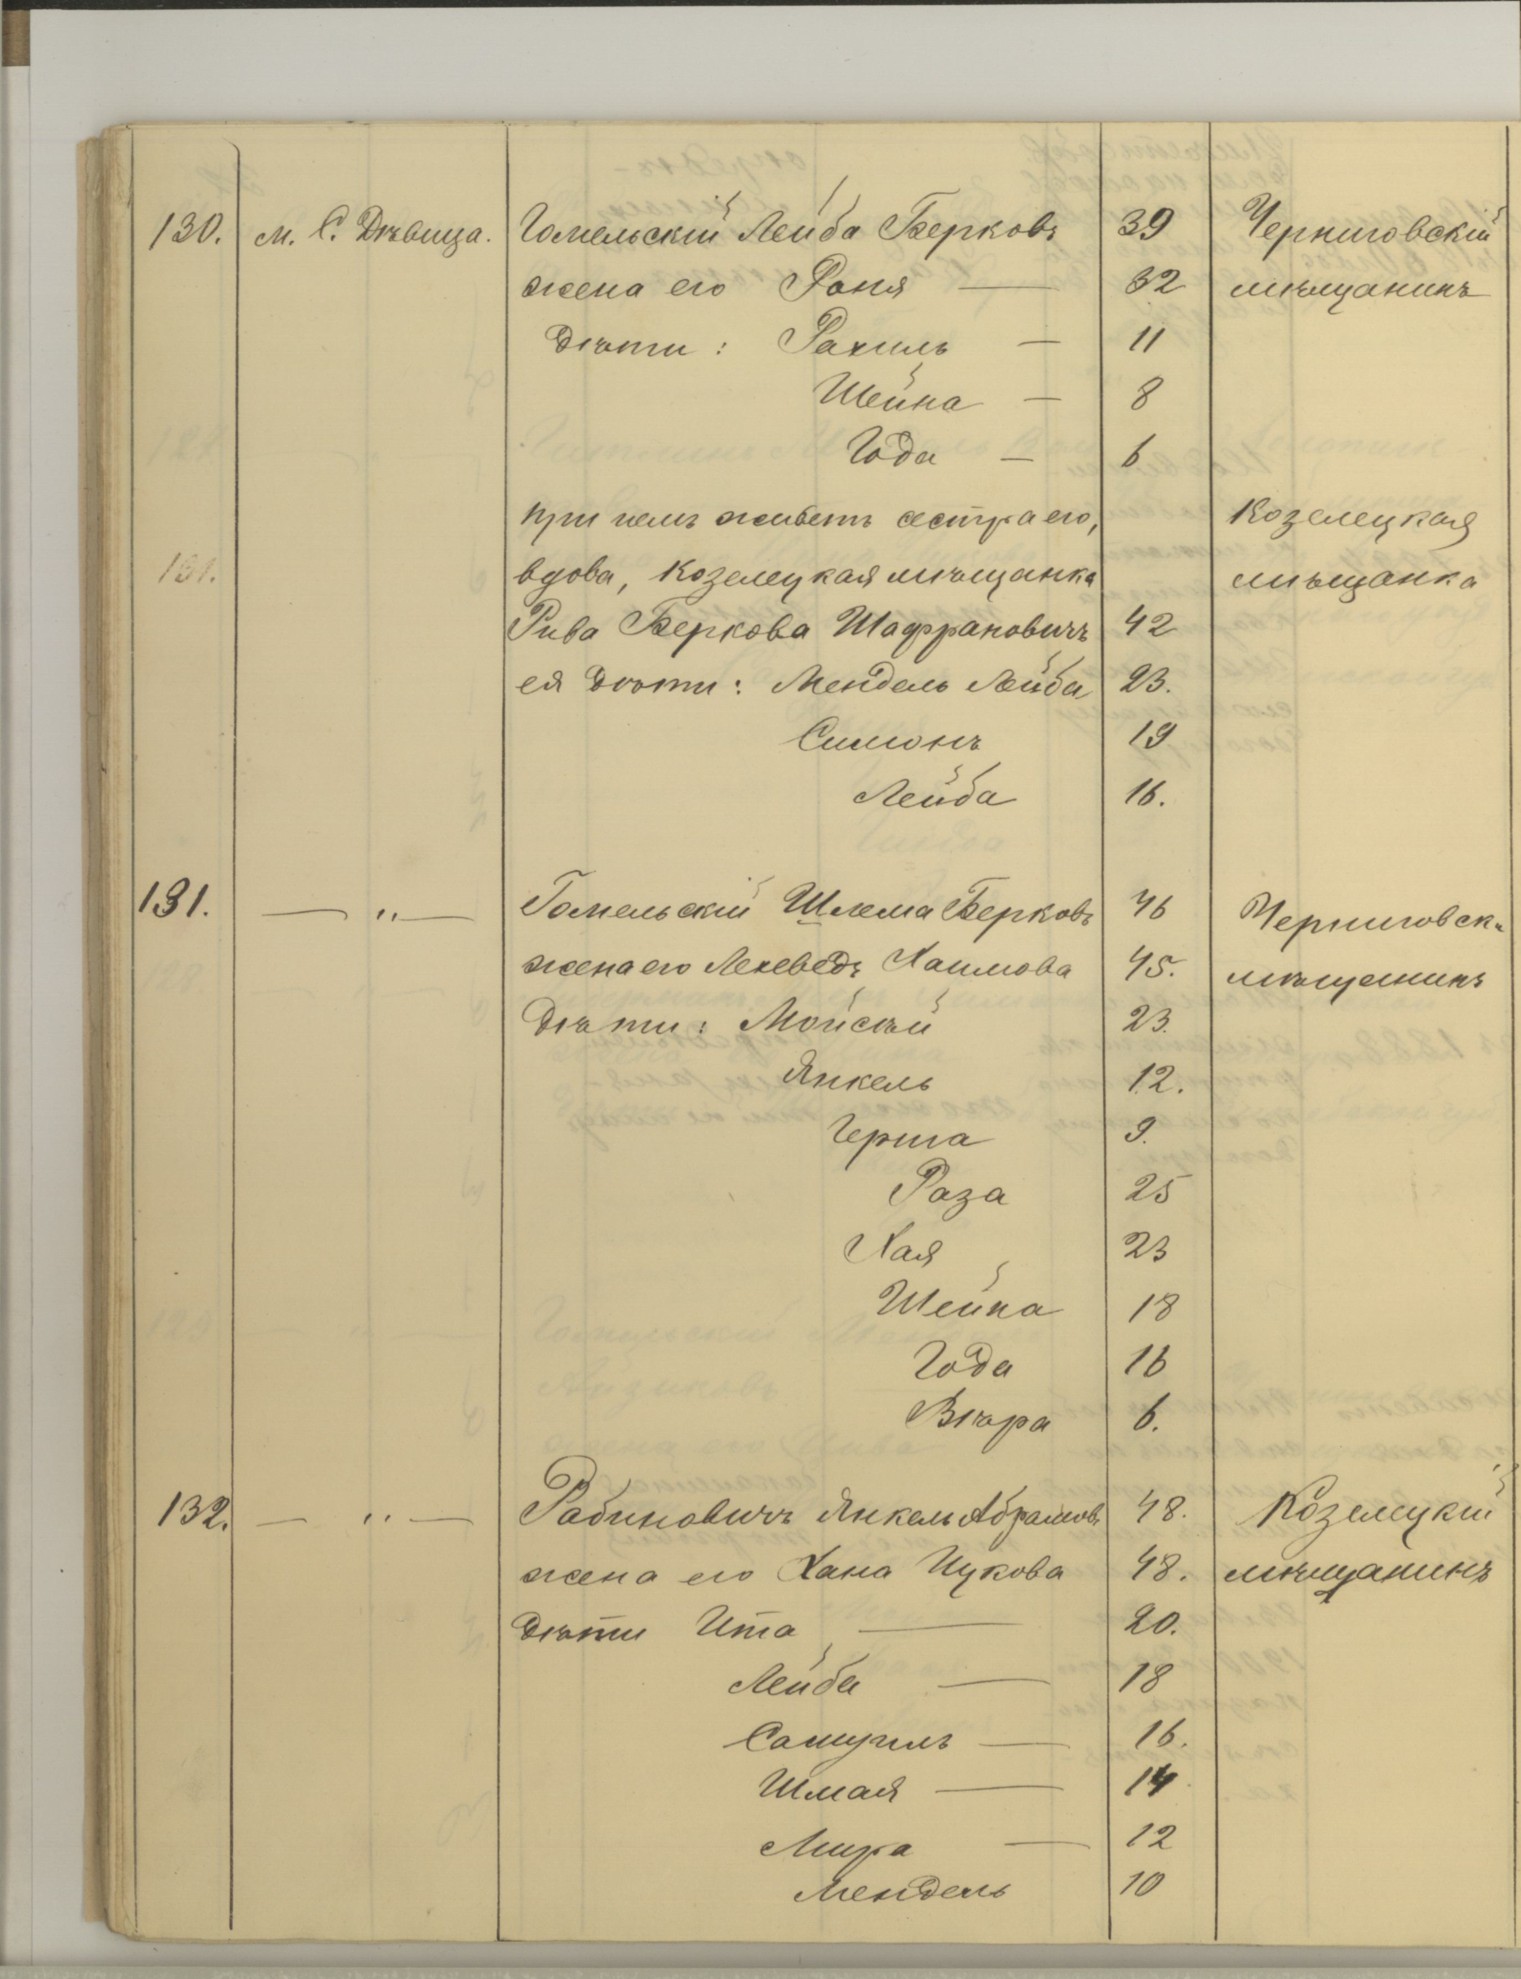 130. м. С. Дѣвица. Гомельскій Лейба Берковъ 39 Черниговскій
жена его Раня — 32 мѣщанинъ
Дѣти: Рахиль — 11
Шейна — 8
Года — 6
при немъ живетъ сестра его, Козелецкая
131. вдова, Козелецкая мѣщанка мѣщанка
Рива Беркова Шафрановичъ 42
ея дѣти: Мендель Лейба 23.
Симонъ 19
Лейба 16.
131. — " — Гомельскій Шлема Берковъ 46 Черниговск.
жена его Хаимова 45. мѣщанинъ
Дѣти: Мойсѣй 23.
Янкель 12.
Герша 9.
Раза 25
Хая 23
Шейна 18
Года 16
Вѣра 6.
132. — " — Рабиновичъ Янкель Абрамовъ 48. Козелецкій
жена его Хана Ицкова 48. мѣщанинъ
Дѣти Ита — 20.
Лейба — 18
Самуилъ — 16.
Шмая — 14
Мира — 12
Мендель 10